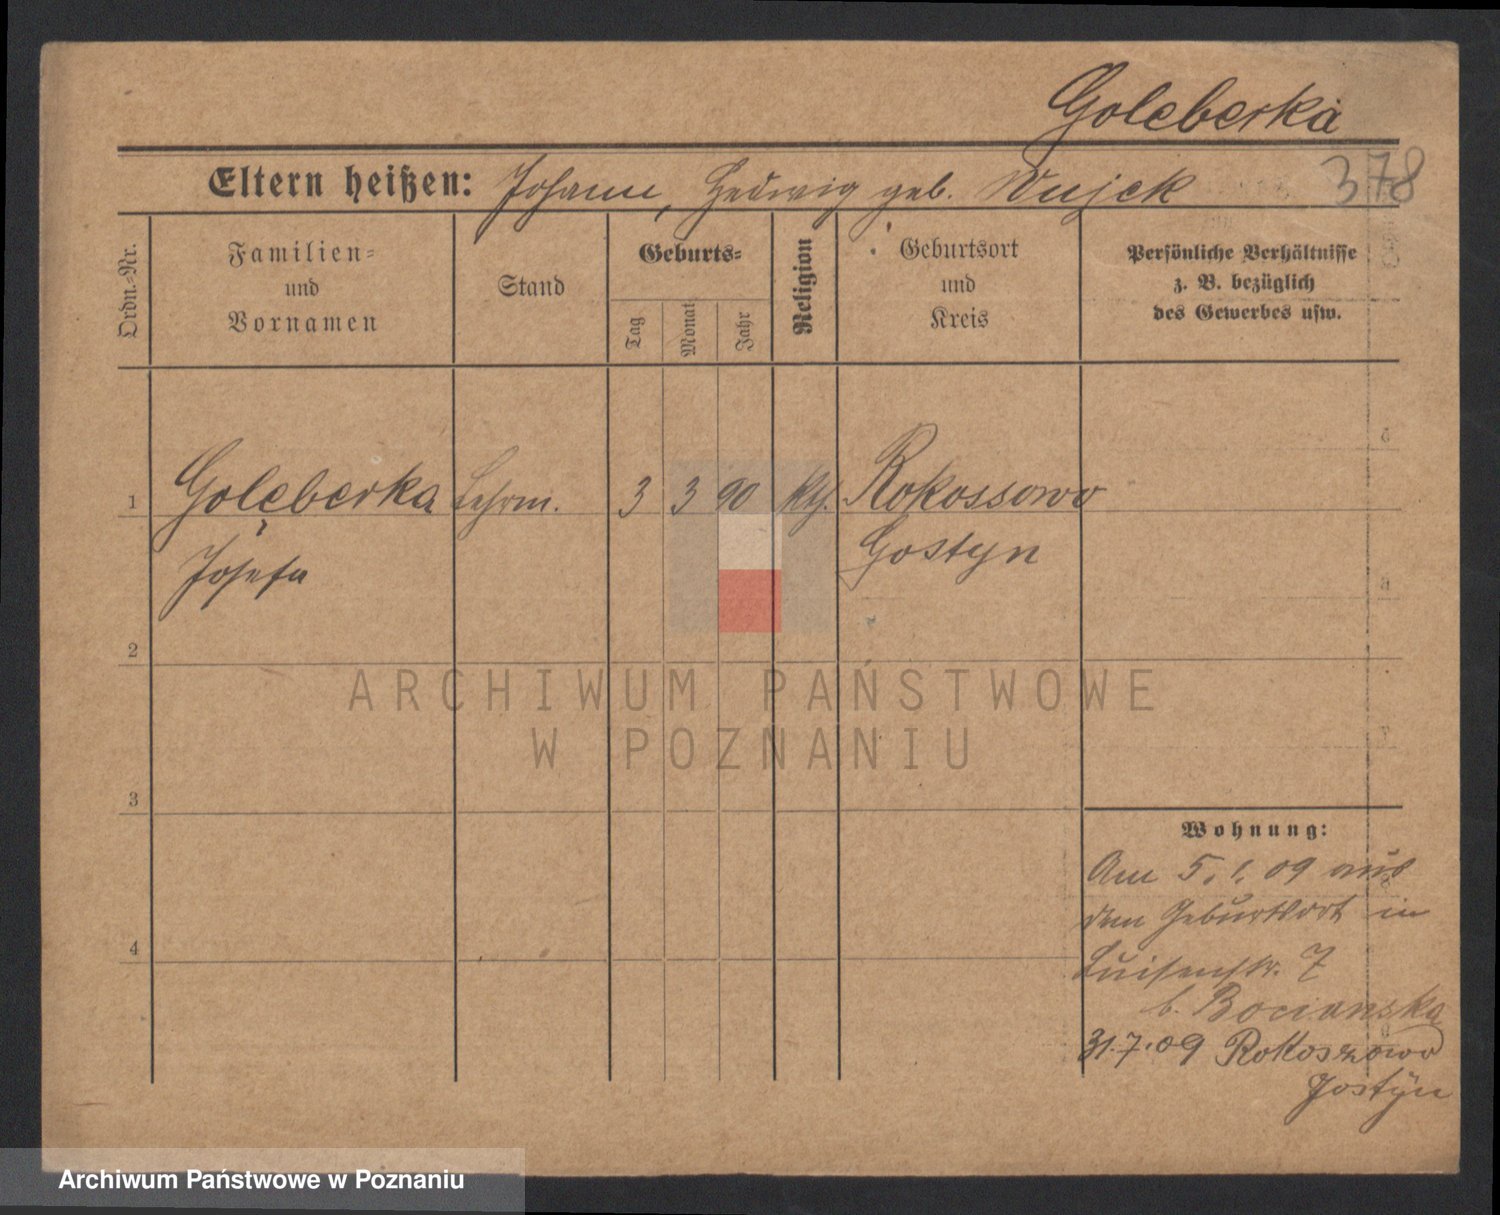 Goleberka
Eltern heißen: Johann, Hedwig geb. Wujek 378
Ordn.-Nr.
Familien-
und
Vornamen
Stand
Geburts-
Tag
Monat
Jahr
Religion
Geburtsort
und
Kreis
Persönliche Verhältnisse
z. B. bezüglich
des Gewerbes usw.
1 Golęberka Lehrm. 3 3 90 kth. Rokossowo
Josefa Gostyn
2
ARCHIWUM PAŃSTWOWE
W POZNANIU
3
Wohnung:
Am 5.1.09 aus
dem Geburtsort in
4
Luisenstr. 7
b. Bocianska
31.7.09 Rokoszowo
Gostÿn
Archiwum Państwowe w Poznaniu